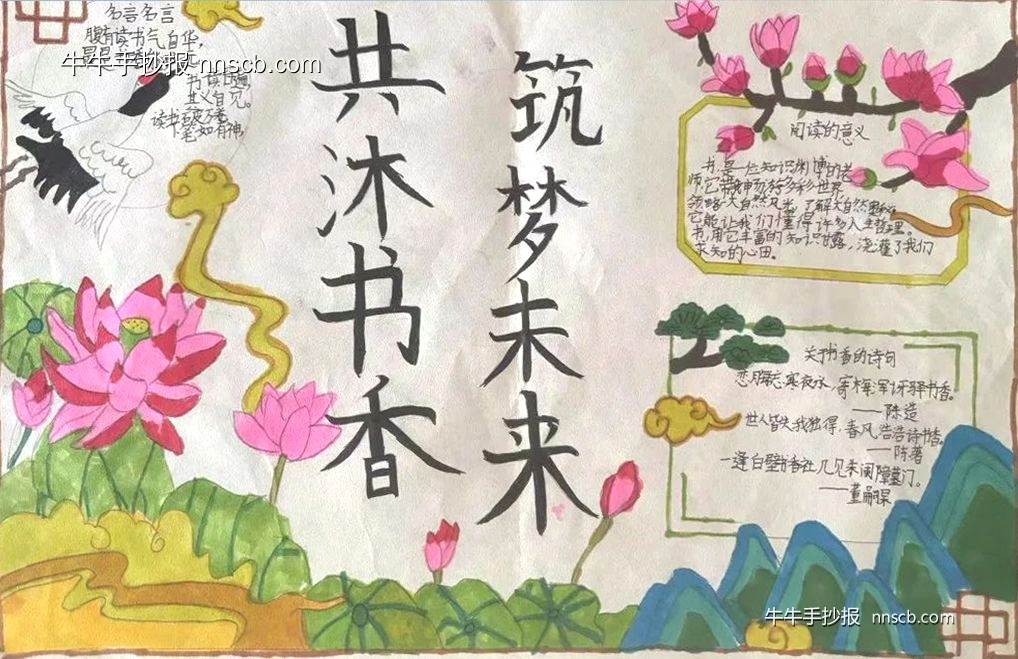 名言名言
腹有读书气自华,
牛牛手抄报 nnscb.com
其义自见。
读书破万卷,
下笔如有神,
共沐书香
筑梦未来
阅读的意义
书是一位知识渊博的老
师,它带我们畅游多彩世界
领略大自然风光,了解大自然奥秘。
它能让我们懂得许多人生哲理。
书,用它丰富的知识甘露,浇灌了我们
求知的心田。
关于书香的诗句
书香。
——陈造
世人皆失我独得,春风浩浩诗书香。
——陈著
一逢白壁书香社,几见朱阑
门。
——董嗣杲
牛牛手抄报 nnscb.com